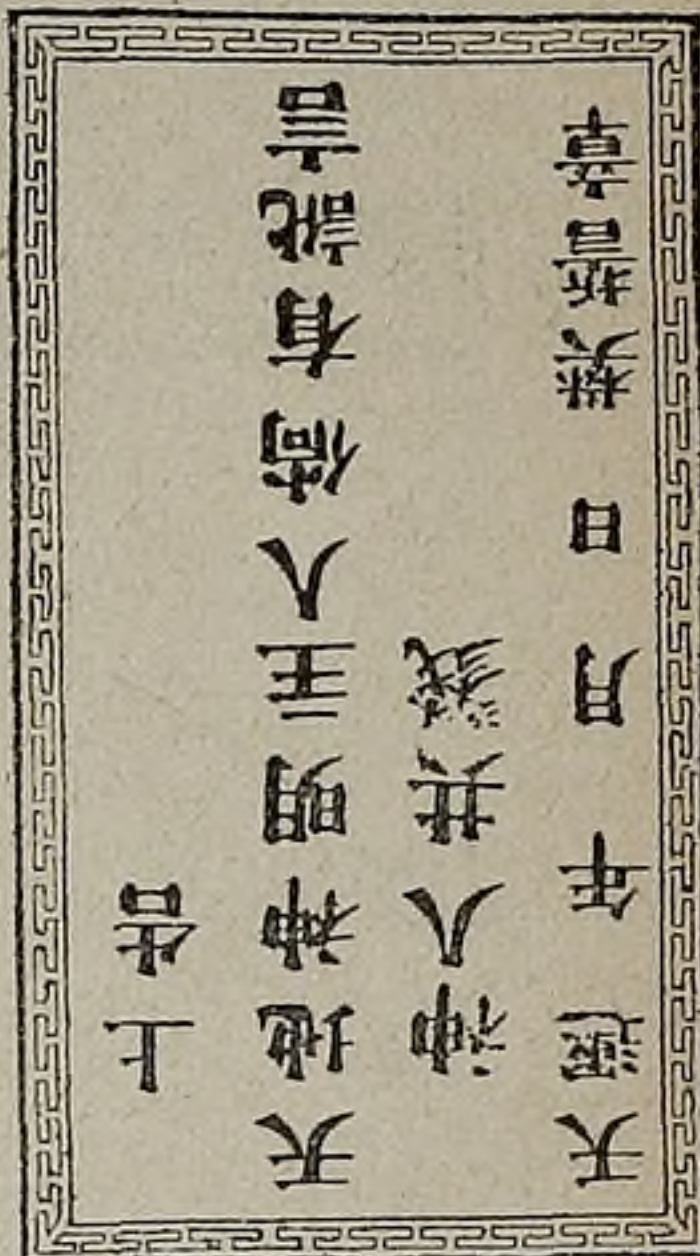 上告
天地神明二王人倘有訛言
神人共戮
天運年月日焚誓章